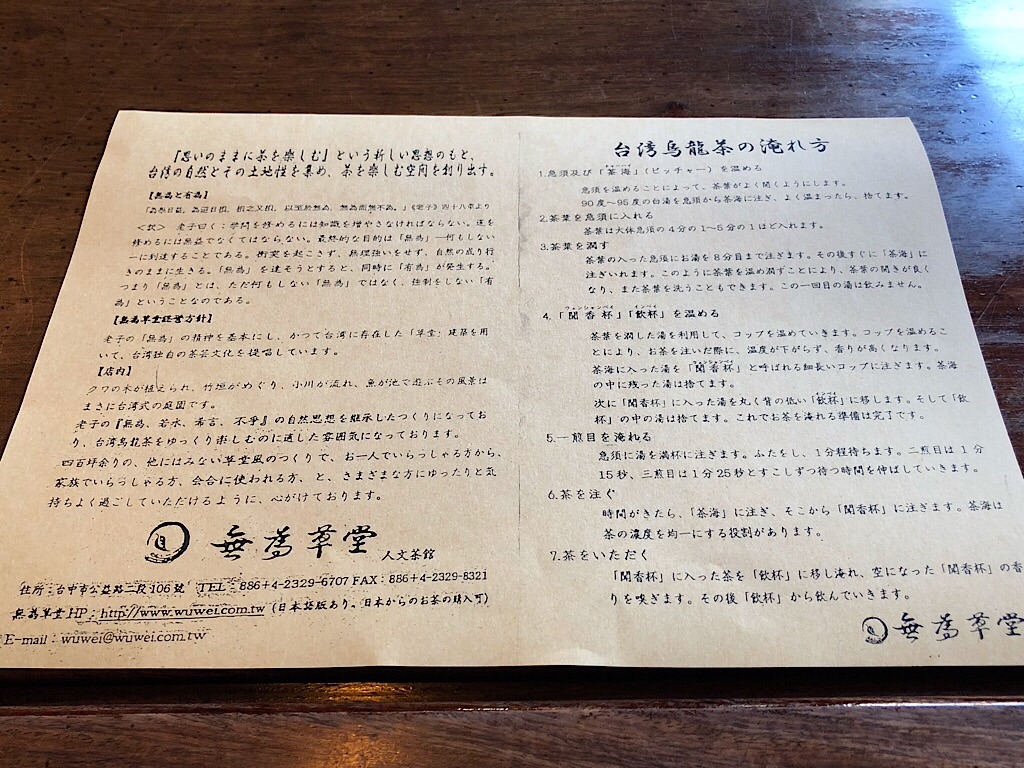 『思いのままに茶を楽しむ』という新しい思想のもと、
台湾の自然とその土地性を集め、茶を楽しむ空間を創り出す。
【無為と有為】
「為學日益，為道日損，損之又損，以至於無為，無為而無不為。」《老子》四十八章より
<訳> 老子曰く：学問を修めるには知識を増やさなければならない。道を
修めるには無益でなくてはならない。最終的な目的は「無為」―何もしない
―に到達することである。衝突を起こさず、無理強いをせず、自然の成り行
きのままに生きる。「無為」を達そうとすると、同時に「有為」が発生する。
つまり「無為」とは、ただ何もしない「無為」ではなく、強制をしない「有
為」ということなのである。
【無為草堂経営方針】
老子の「無為」の精神を基本にし、かつて台湾に存在した「草堂」建築を用
いて、台湾独自の茶芸文化を提唱しています。
【店内】
クワの木が植えられ、竹垣がめぐり、小川が流れ、魚が池で遊ぶその風景は
まさに台湾式の庭園です。
老子の『無為、若水、希言、不争』の自然思想を継承したつくりになってお
り、台湾烏龍茶をゆっくり楽しむのに適した雰囲気になっております。
四百坪余りの、他にはみない草堂風のつくりで、お一人でいらっしゃる方から、
家族でいらっしゃる方、会合に使われる方、と、さまざまな方にゆったりと気
持ちよく過ごしていただけるように、心がけております。
無為草堂 人文茶館
住所：台中市公益路二段106號 TEL：886+4-2329-6707 FAX：886+4-2329-8321
無為草堂HP：http://www.wuwei.com.tw (日本語版あり、日本からのお茶の購入可)
E-mail：wuwei@wuwei.com.tw
台湾烏龍茶の淹れ方
1.急須及び「茶海」(ピッチャー)を温める
急須を温めることによって、茶葉がよく開くようにします。
90度～95度の白湯を急須から茶海に注ぎ、よく温まったら、捨てます。
2.茶葉を急須に入れる
茶葉は大体急須の4分の1～5分の1ほど入れます。
3.茶葉を潤す
茶葉の入った急須にお湯を8分目まで注ぎます。その後すぐに「茶海」に
注ぎいれます。このように茶葉を温め潤すことにより、茶葉の開きが良く
なり、また茶葉を洗うこともできます。この一回目の湯は飲みません。
ウェンシャンベイ インベイ
4.「聞香杯」「飲杯」を温める
茶葉を潤した湯を利用して、コップを温めていきます。コップを温めるこ
とにより、お茶を注いだ際に、温度が下がらず、香りが高くなります。
茶海に入った湯を「聞香杯」と呼ばれる細長いコップに注ぎます。茶海
の中に残った湯は捨てます。
次に「聞香杯」に入った湯を丸く背の低い「飲杯」に移します。そして「飲
杯」の中の湯は捨てます。これでお茶を淹れる準備は完了です。
5.一煎目を淹れる
急須に湯を満杯に注ぎます。ふたをし、1分程待ちます。二煎目は1分
15秒、三煎目は1分25秒とすこしずつ待つ時間を伸ばしていきます。
6.茶を注ぐ
時間がきたら、「茶海」に注ぎ、そこから「聞香杯」に注ぎます。茶海は
茶の濃度を均一にする役割があります。
7.茶をいただく
「聞香杯」に入った茶を「飲杯」に移し淹れ、空になった「聞香杯」の香
りを嗅ぎます。その後「飲杯」から飲んでいきます。
無為草堂